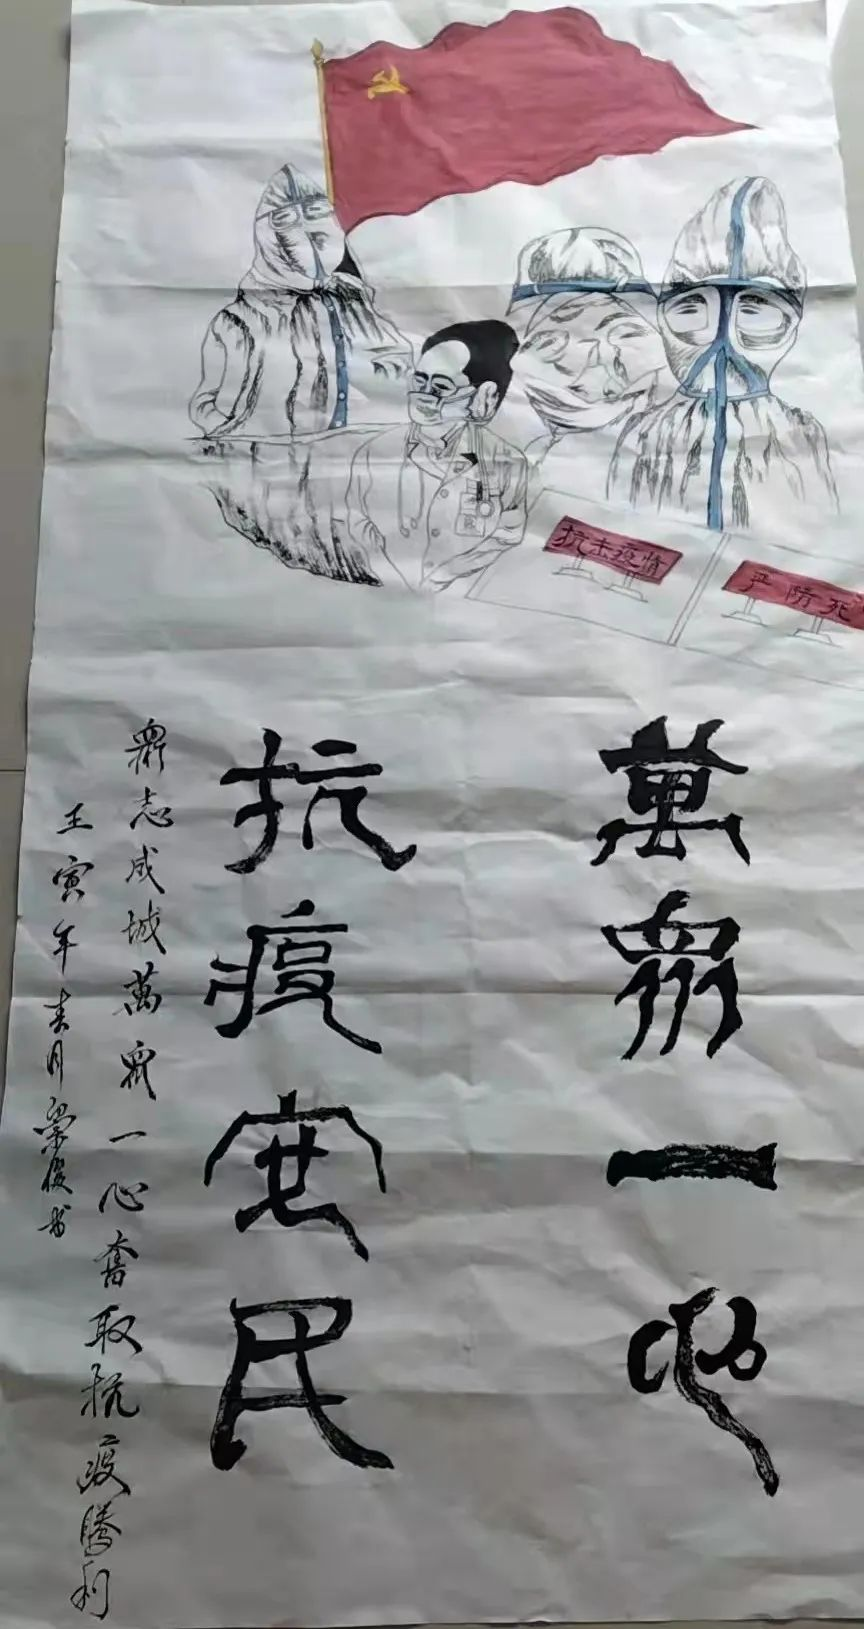 抗击疫情
严防死
萬眾一心
抗疫安民
眾志成城萬眾一心奮取抗疫勝利
壬寅年春月梁俊书